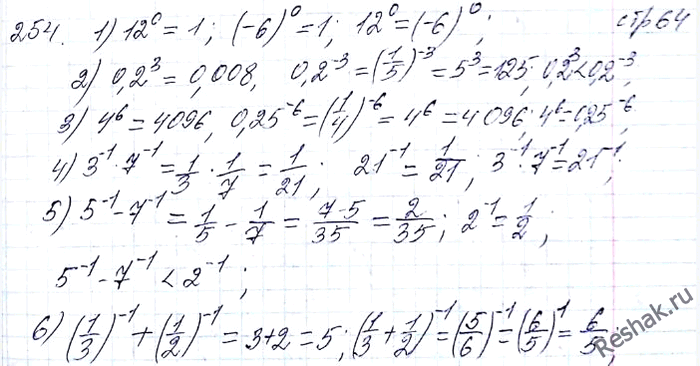 254. 1) 12⁰ = 1; (-6)⁰ = 1; 12⁰ = (-6)⁰; стр 64
2) 0,2³ = 0,008, 0,2⁻³ = (1/5)⁻³ = 5³ = 125; 0,2³ < 0,2⁻³,
3) 4⁶ = 4096, 0,25⁻⁶ = (1/4)⁻⁶ = 4⁶ = 4096; 4⁶ = 0,25⁻⁶;
4) 3⁻¹ · 7⁻¹ = 1/3 · 1/7 = 1/21; 21⁻¹ = 1/21; 3⁻¹ · 7⁻¹ = 21⁻¹;
5) 5⁻¹ - 7⁻¹ = 1/5 - 1/7 = 7-5/35 = 2/35; 2⁻¹ = 1/2;
5⁻¹ - 7⁻¹ < 2⁻¹;
6) (1/3)⁻¹ + (1/2)⁻¹ = 3+2 = 5; (1/3 + 1/2)⁻¹ = (5/6)⁻¹ = (6/5)¹ = 6/5;
Reshak.ru